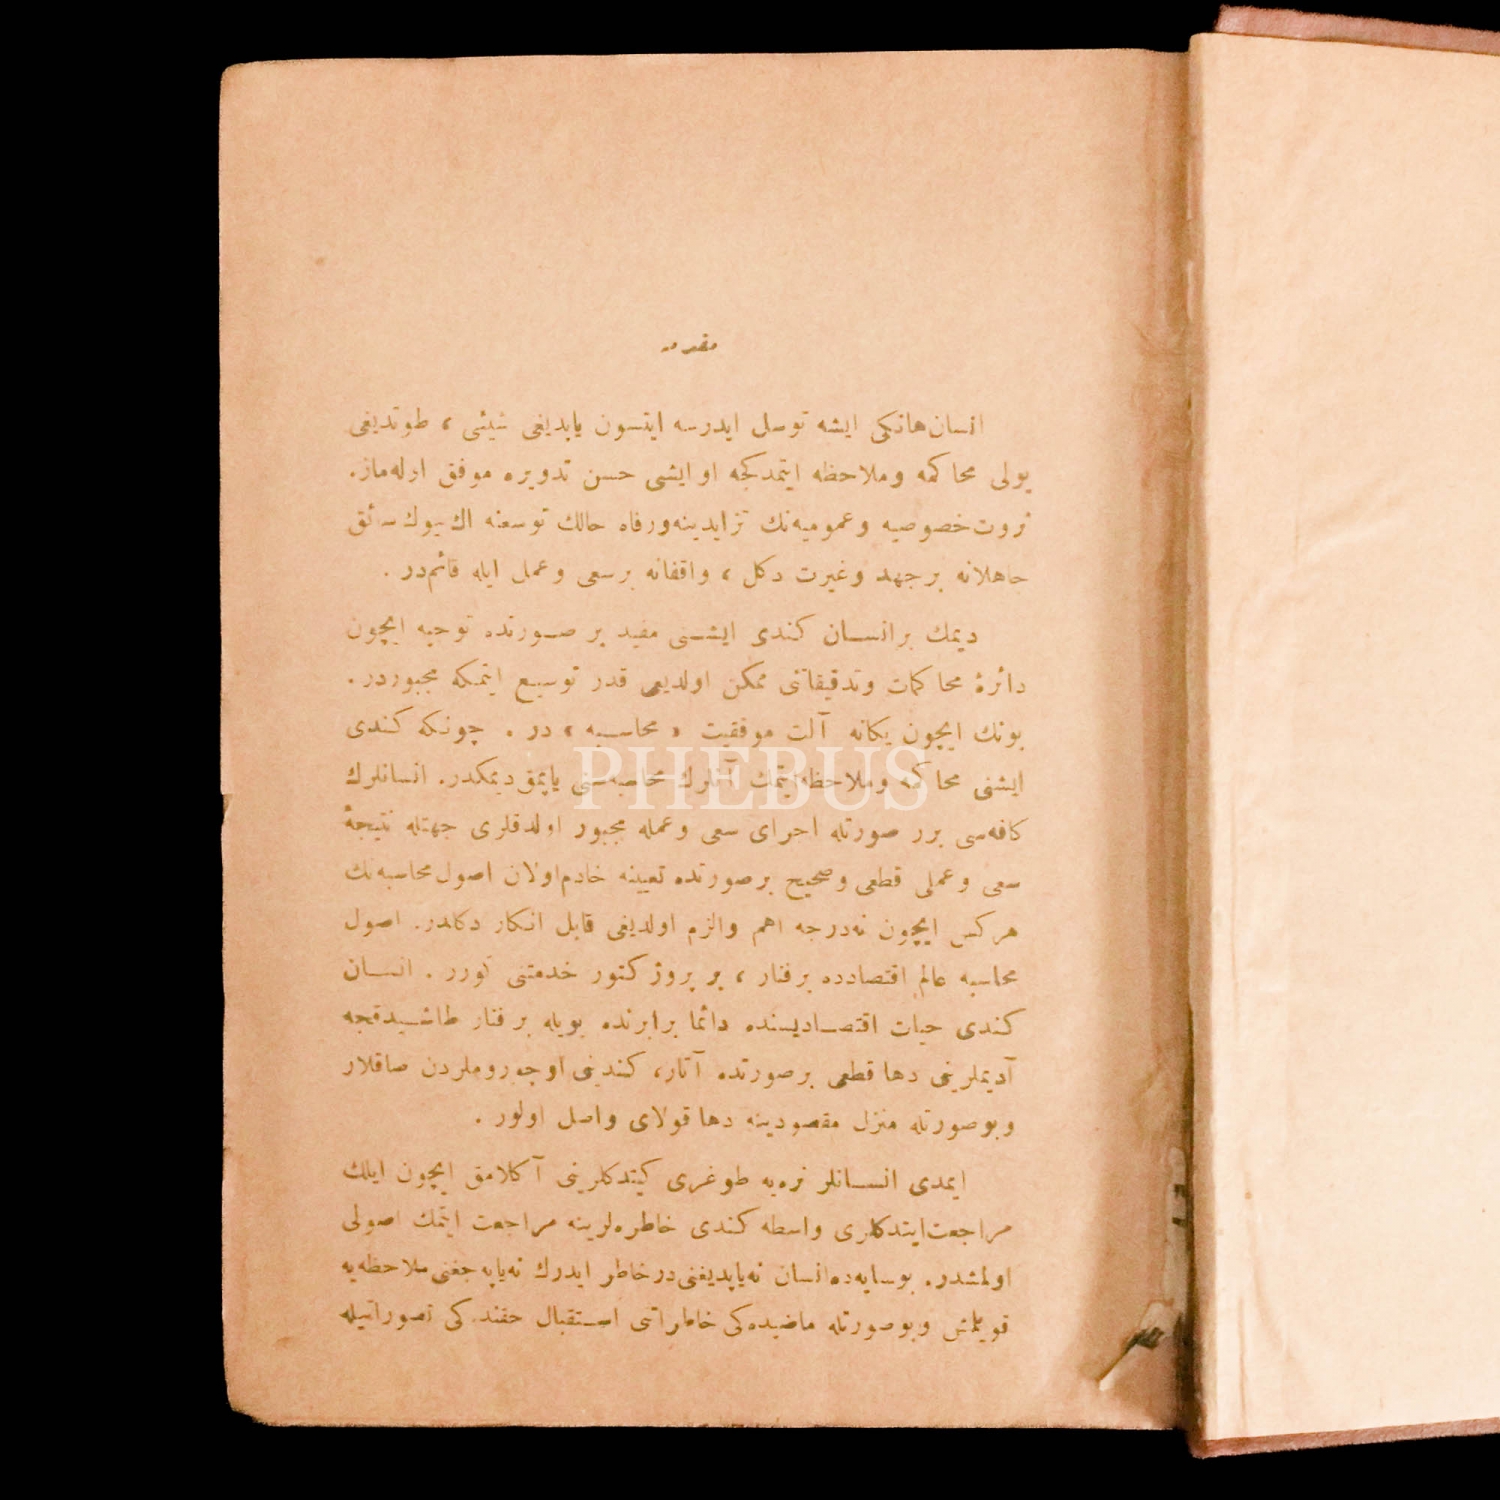 مقدمه
انسان هانكی ایشه توسل ایدرسه ایتسون یاپدیغی شیئی ، طوتدیغی
یولی محاكمه وملاحظه ایتمدكجه او ایشی حسن تدویره موفق اوله‌ماز.
ثروت خصوصیه وعمومیه‌نك تزایدینه ورفاه حالك توسعنه اك بیوك سائق
جاهلانه برجهد وغیرت دكل ، واقفانه برسعی وعمل ایله قائم‌در .
دیمك برانسان كندی ایشنی مفید بر صورتده توجیه ایچون
دائرۀ محاكمات وتدقیقاتنی ممكن اولدیغی قدر توسیع ایتمكه مجبوردر .
بونك ایچون یكانه آلت موفقیت « محاسبه » در . چونكه كندی
ایشنی محاكمه وملاحظه ایتمك آنلرك محاسبه‌سنی یاپمق دیمكدر. انسانلرك
كافه‌سی برر صورتله اجرای سعی وعمله مجبور اولدقلری جهتله نتیجۀ
سعی وعملی قطعی وصحیح برصورتده تعیینه خادم اولان اصول محاسبه‌نك
هركس ایچون نه‌درجه اهم والزم اولدیغی قابل انكار دكلدر. اصول
محاسبه عالم اقتصادده برفنار ، بر پروژكتور خدمتنی كورر . انسان
كندی حیات اقتصادیسنده دائما برابرنده بویله برفنار طاشیدقجه
آدیملرینی دها قطعی برصورتده آتار، كندینی اوچوروملردن صاقلار
وبوصورتله منزل مقصودینه دها قولای واصل اولور .
ایمدی انسانلر نره‌یه طوغری كیتدكلرینی آكلامق ایچون ایلك
مراجعت ایتدكلری واسطه كندی خاطره‌لرینه مراجعت ایتمك اصولی
اولمشدر. بوسایه‌ده انسان نه‌یاپدیغنی درخاطر ایدرك نه‌یاپه‌جغنی ملاحظه‌یه
قویلمش وبوصورتله ماضیده‌كی خاطراتنی استقبال حقنده‌كی تصوراتیله
PHEBUS